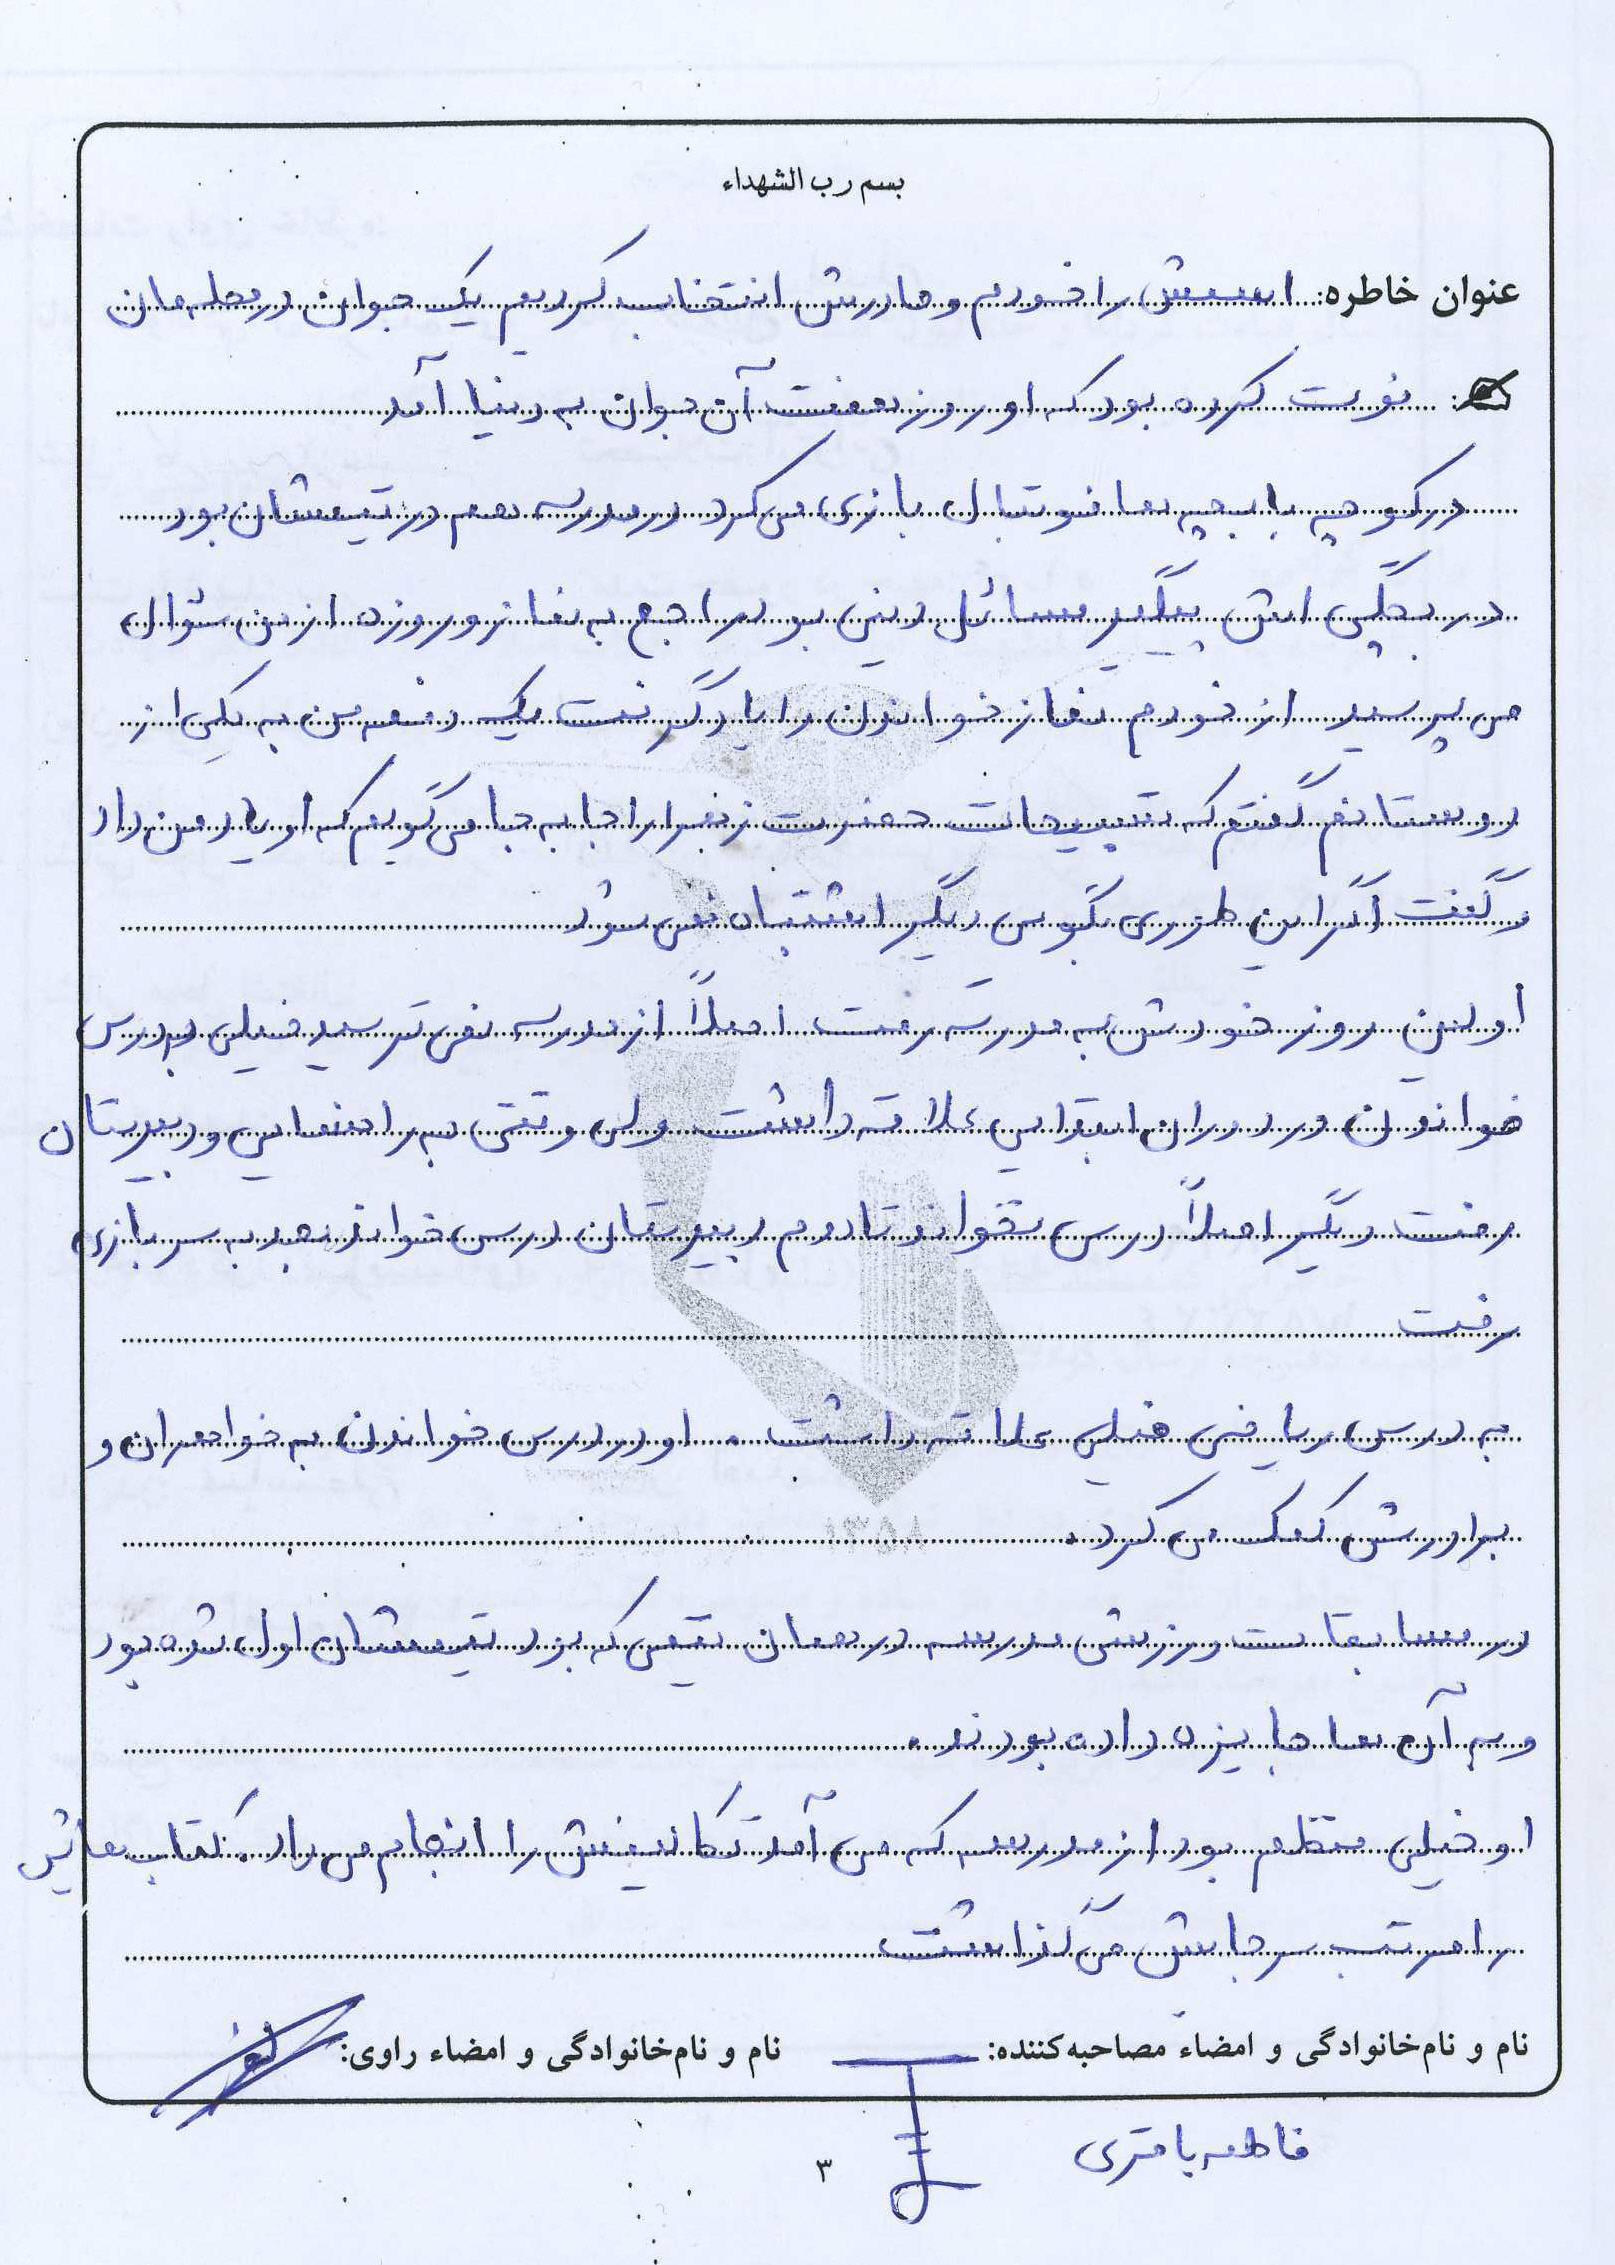 بسم رب الشهداء
عنوان خاطره: اسمش را خودم و مادرش انتخاب کردیم یک جوان در محله مان
فوت کرده بود که او روز هفت آن جوان به دنیا آمد
در کوچه با بچه ها فوتبال بازی می کرد در مدرسه هم در تیمشان بود
در بچگی اش پیگیر مسائل دینی بود راجع به نماز و روزه از من سئوال
می پرسید از خودم نماز خواندن را یاد گرفت یک دفعه من به یکی از
دوستانم گفتم که تسبیحات حضرت زهرا را جا به جا می گویم که او یاد من داد
و گفت اگر این طوری بگویی دیگر اشتباه نمی شود
اولین روز خودش به مدرسه رفت اصلاً از مدرسه نمی ترسید خیلی به درس
خواندن در دوران ابتدایی علاقه داشت ولی وقتی به راهنمایی و دبیرستان
رفت دیگر اصلاً درس نخواند تا دوم دبیرستان درس خواند بعد به سربازی
رفت
به درس ریاضی خیلی علاقه داشت . او در درس خواندن به خواهران و
برادرش کمک می کرد .
در مسابقات ورزشی مدرسه در همان تیمی که بود تیمشان اول شده بود
و به آن ها جایزه داده بودند .
او خیلی منظم بود از مدرسه که می آمد تکالیفش را انجام می داد . کتاب هایش
را مرتب سر جایش می گذاشت
نام و نام‌خانوادگی و امضاء مصاحبه‌کننده: نام و نام‌خانوادگی و امضاء راوی:
فاطمه باقری
۳
۱۳۵۸